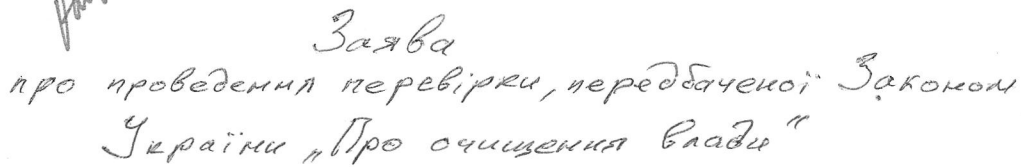 Заява
про проведення перевірки, передбаченої Законом
України „Про очищення влади"